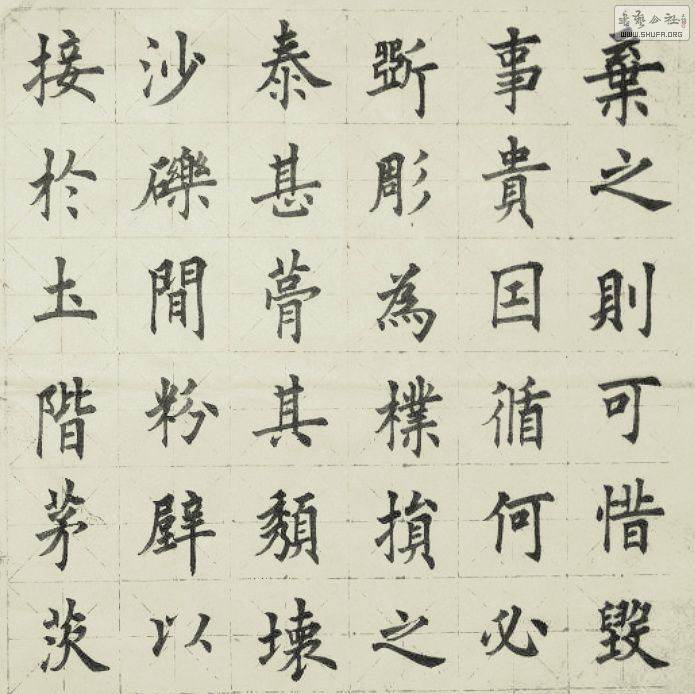 棄之則可惜毀
事貴囙循何必
斲彫為樸損之
泰甚葺其頹壞
沙礫間粉壁以
接於土階茅茨
書藝公社
WWW.SHUFA.ORG